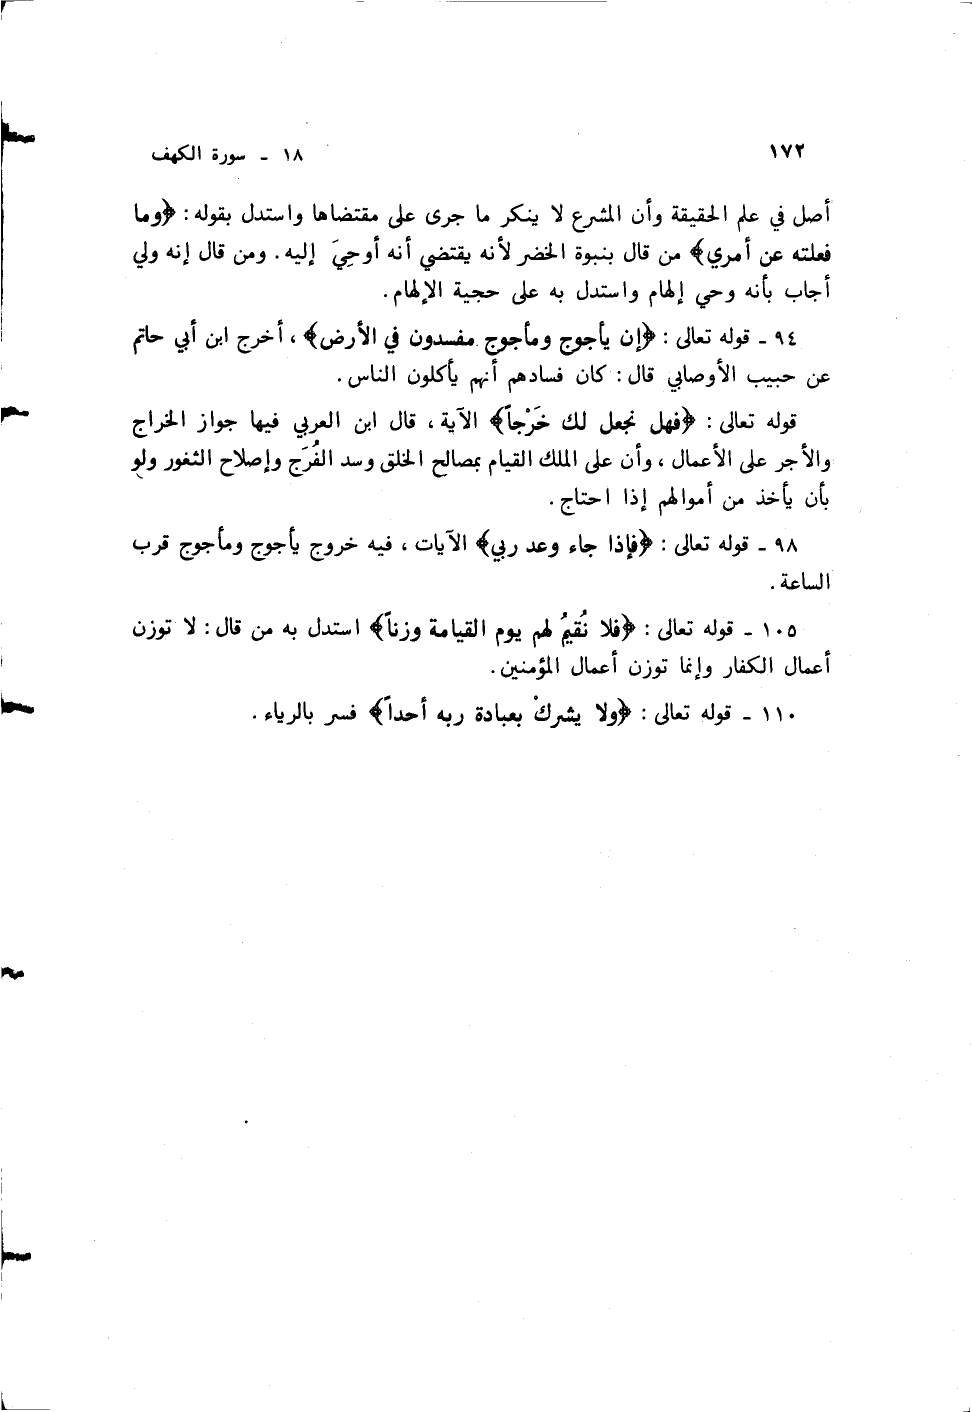 ١٧٢ ١٨ ـ سورة الكهف
أصل في علم الحقيقة وأن المشرع لا ينكر ما جرى على مقتضاها واستدل بقوله : ﴿وما
فعلته عن أمري﴾ من قال بنبوة الخضر لأنه يقتضي أنه أوحِيَ إليه . ومن قال إنه ولي
أجاب بأنه وحي إلهام واستدل به على حجية الإلهام .
٩٤ ـ قوله تعالى : ﴿إن يأجوج ومأجوج مفسدون في الأرض﴾ ، أخرج ابن أبي حاتم
عن حبيب الأوصابي قال : كان فسادهم أنهم يأكلون الناس .
قوله تعالى : ﴿فهل نجعل لك خَرْجاً﴾ الآية ، قال ابن العربي فيها جواز الخراج
والأجر على الأعمال ، وأن على الملك القيام بمصالح الخلق وسد الفُرَج وإصلاح الثغور ولو
بأن يأخذ من أموالهم إذا احتاج .
٩٨ ـ قوله تعالى : ﴿فإذا جاء وعد ربي﴾ الآيات ، فيه خروج يأجوج ومأجوج قرب
الساعة .
١٠٥ ـ قوله تعالى : ﴿فلا نُقيمُ لهم يوم القيامة وزناً﴾ استدل به من قال : لا توزن
أعمال الكفار وإنما توزن أعمال المؤمنين .
١١٠ ـ قوله تعالى : ﴿ولا يشركْ بعبادة ربه أحداً﴾ فسر بالرياء .